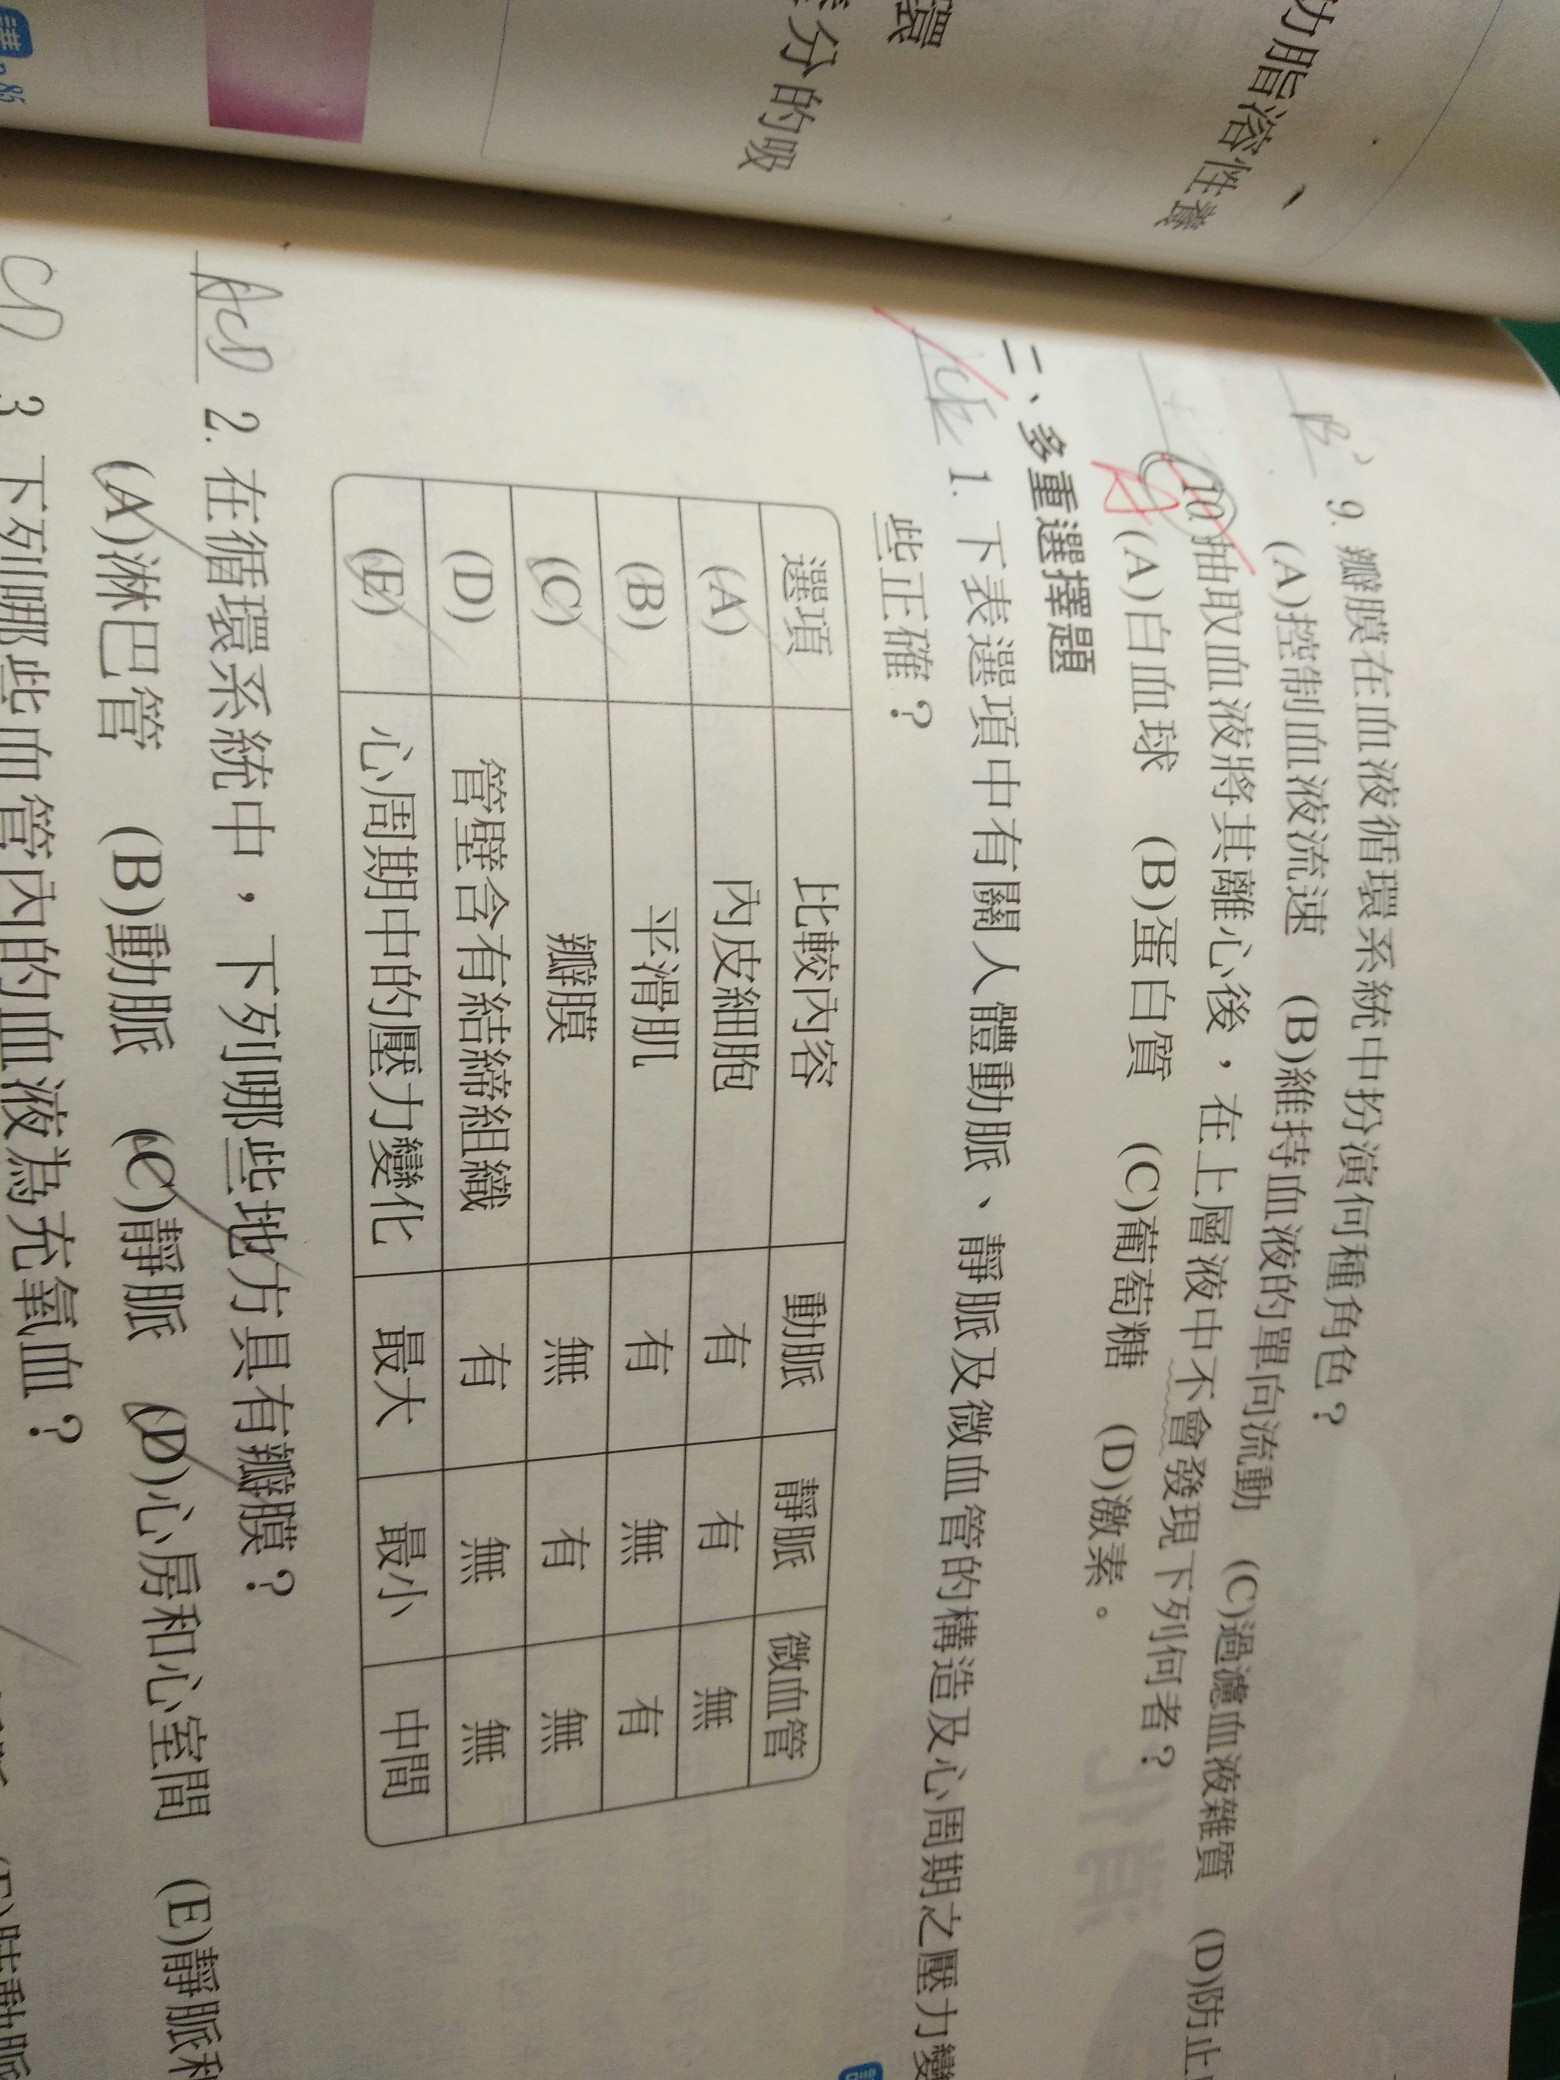 功脂溶性養
環
分的吸
講 p.85
B 9. 瓣膜在血液循環系統中扮演何種角色？
(A)控制血液流速 (B)維持血液的單向流動 (C)過濾血液雜質 (D)防止
10. 抽取血液將其離心後，在上層液中不會發現下列何者？
A (A)白血球 (B)蛋白質 (C)葡萄糖 (D)激素。
二、多重選擇題
CE 1. 下表選項中有關人體動脈、靜脈及微血管的構造及心周期之壓力變
些正確？
選項 比較內容 動脈 靜脈 微血管
(A) 內皮細胞 有 有 無
(B) 平滑肌 有 無 有
(C) 瓣膜 無 有 無
(D) 管壁含有結締組織 有 無 無
(E) 心周期中的壓力變化 最大 最小 中間
ACD 2. 在循環系統中，下列哪些地方具有瓣膜？
(A)淋巴管 (B)動脈 (C)靜脈 (D)心房和心室間 (E)靜脈和
CD 3. 下列哪些血管內的血液為充氧血？